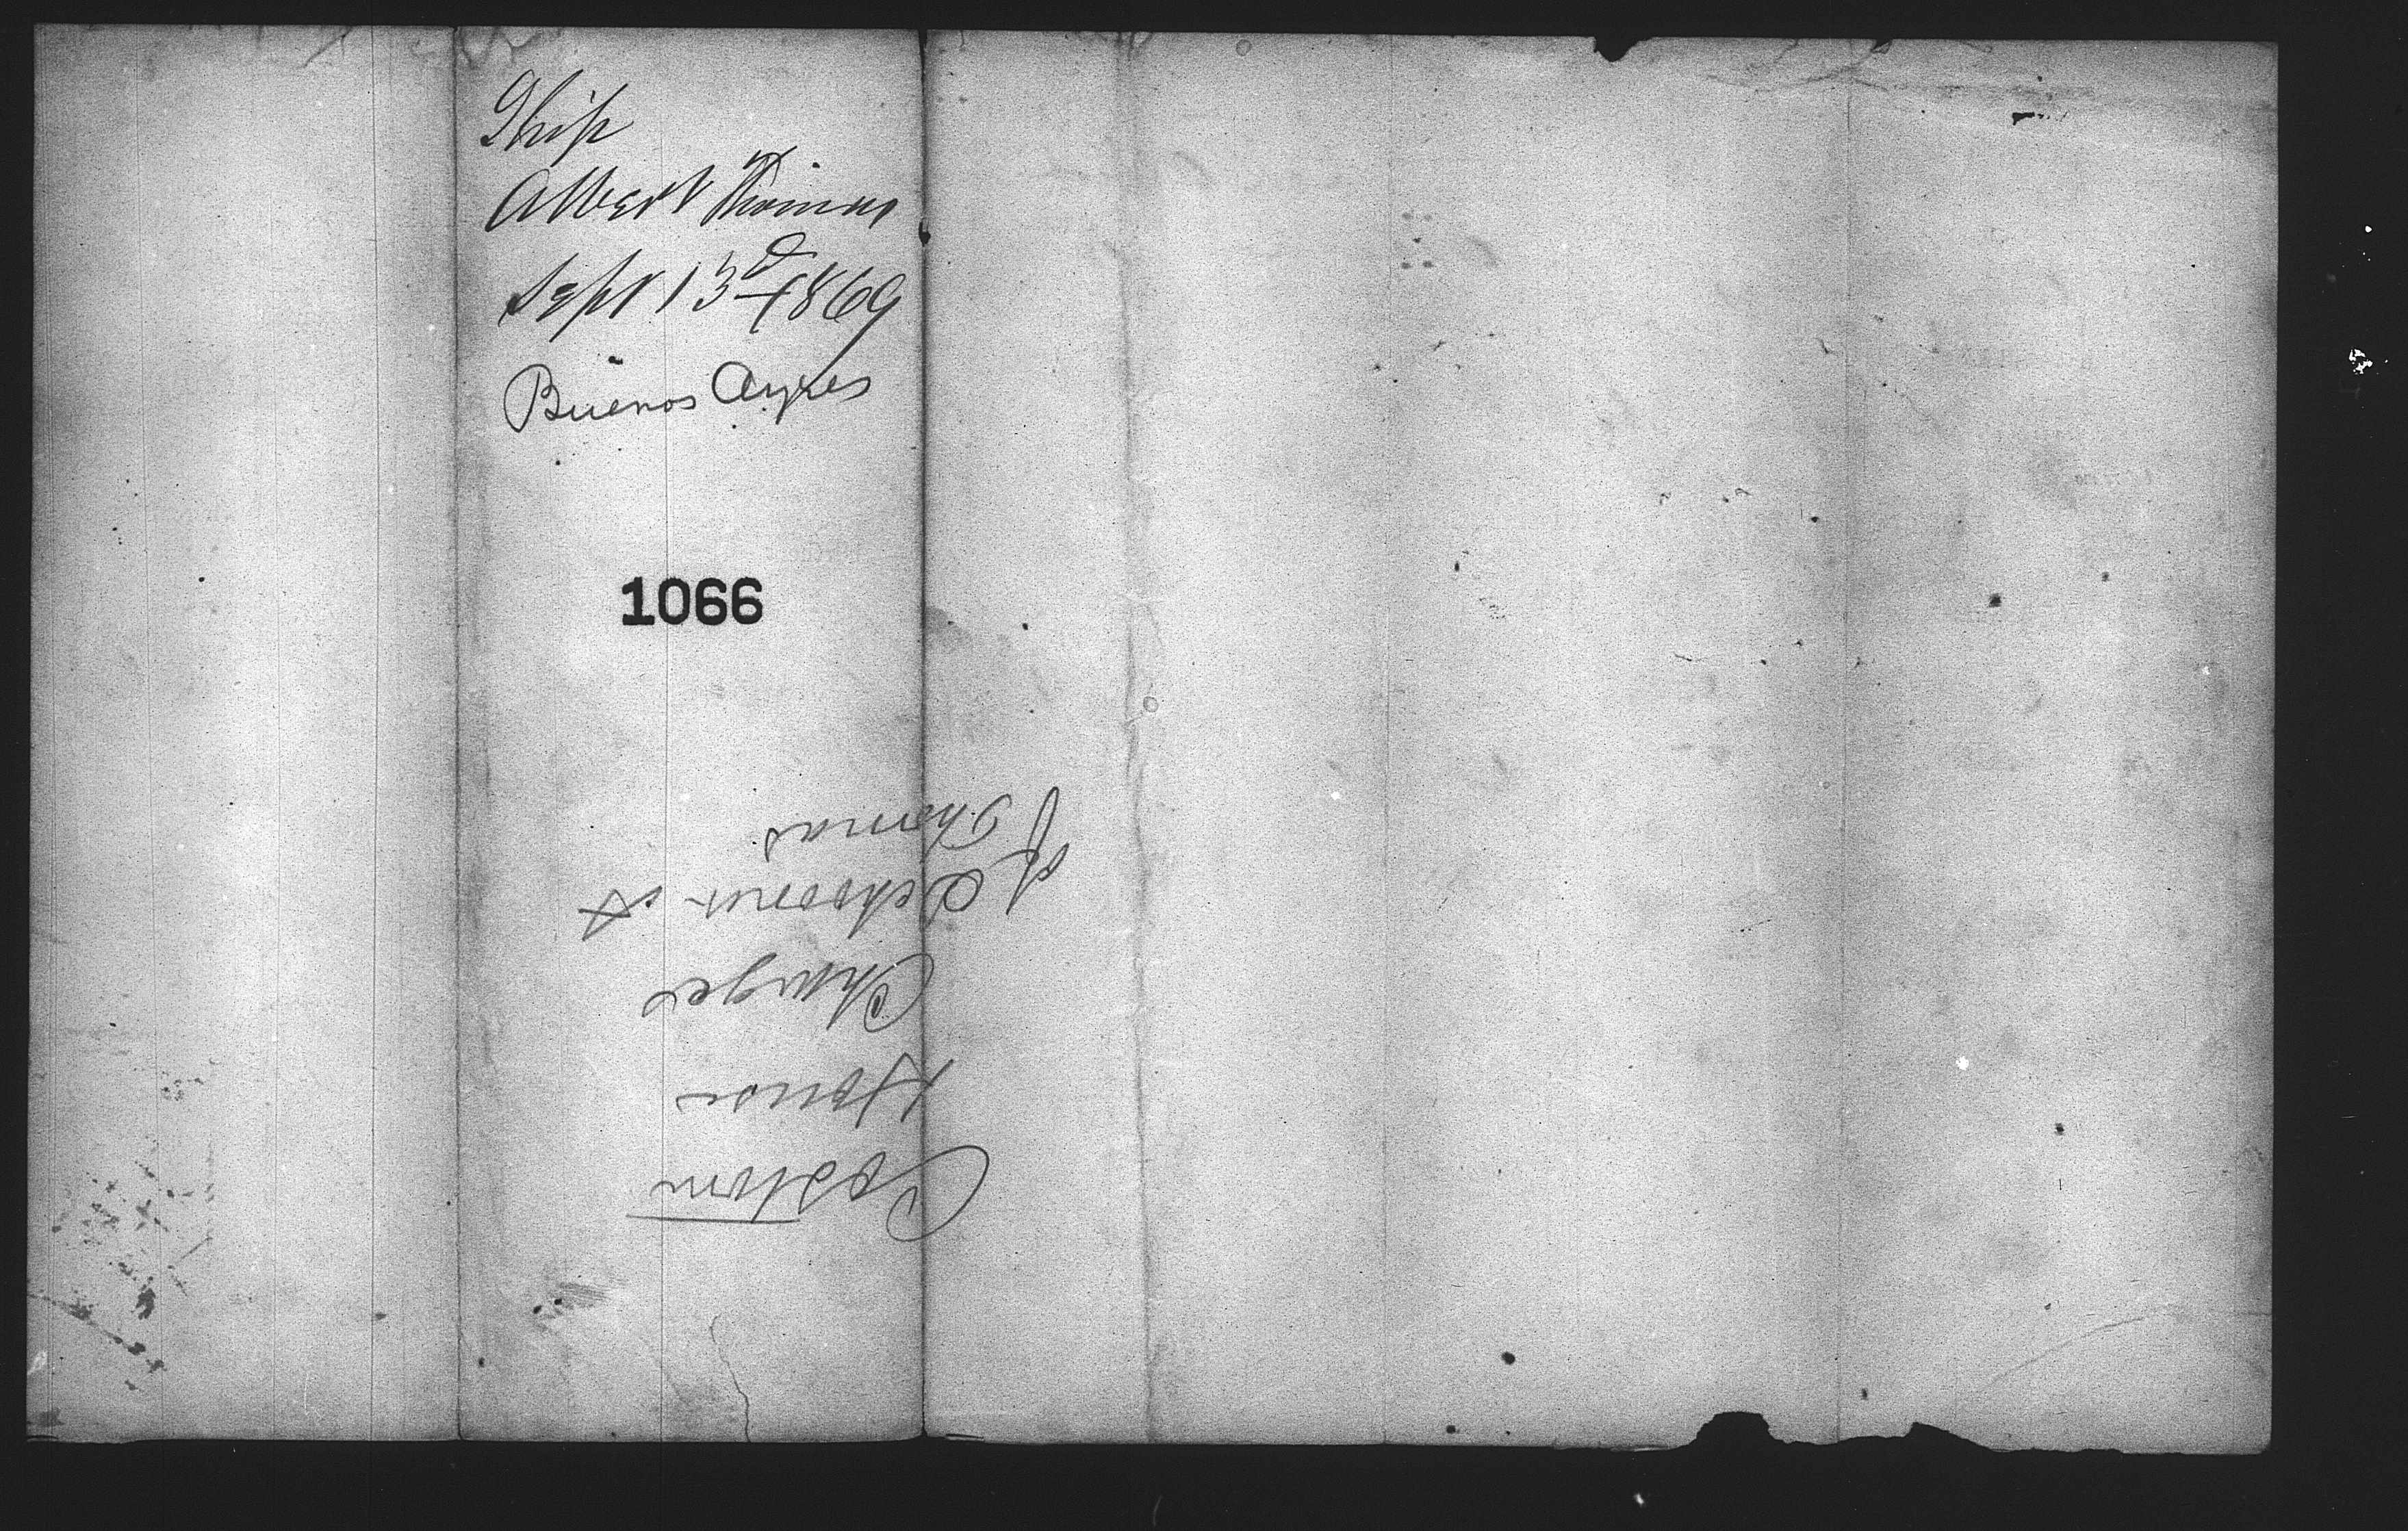 Ship
Albert Thomas
Sept 13d 1869
Buenos Ayres
1066
Custom
House
Charges
of Schooner A
J Thomas